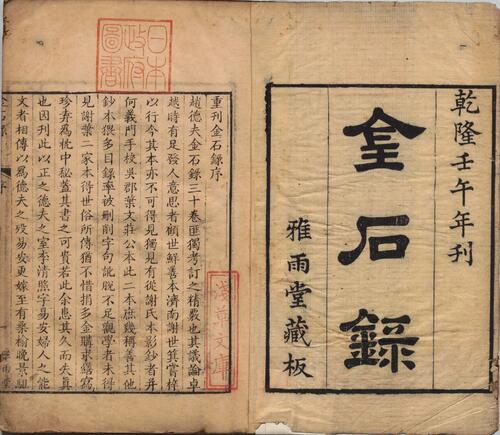 乾隆壬午年刊
金石錄
雅雨堂藏板
日本
政府
圖書
重刊金石錄序
趙德夫金石錄三十卷匪獨考訂之精嚴也其議論卓
越時有足發人意思者顧世鮮善本濟南謝世箕嘗梓
以行今其本亦不可得見獨見有從謝氏本影鈔者并
何義門手校吳郡葉文莊公本此二本庶幾稱善其他
鈔本猥多目錄率被刪削字句訛脫不足觀學者未得
見謝葉二家本得世俗所傳猶不惜捐多金購求繕寫
珍弆為枕中秘蓋其書之可貴若此余患其久而失真
也因刊此以正之德夫之室李清照字易安婦人之能
文者相傳以爲德夫之歿易安更嫁至有桑榆晚景駔
淺草文庫